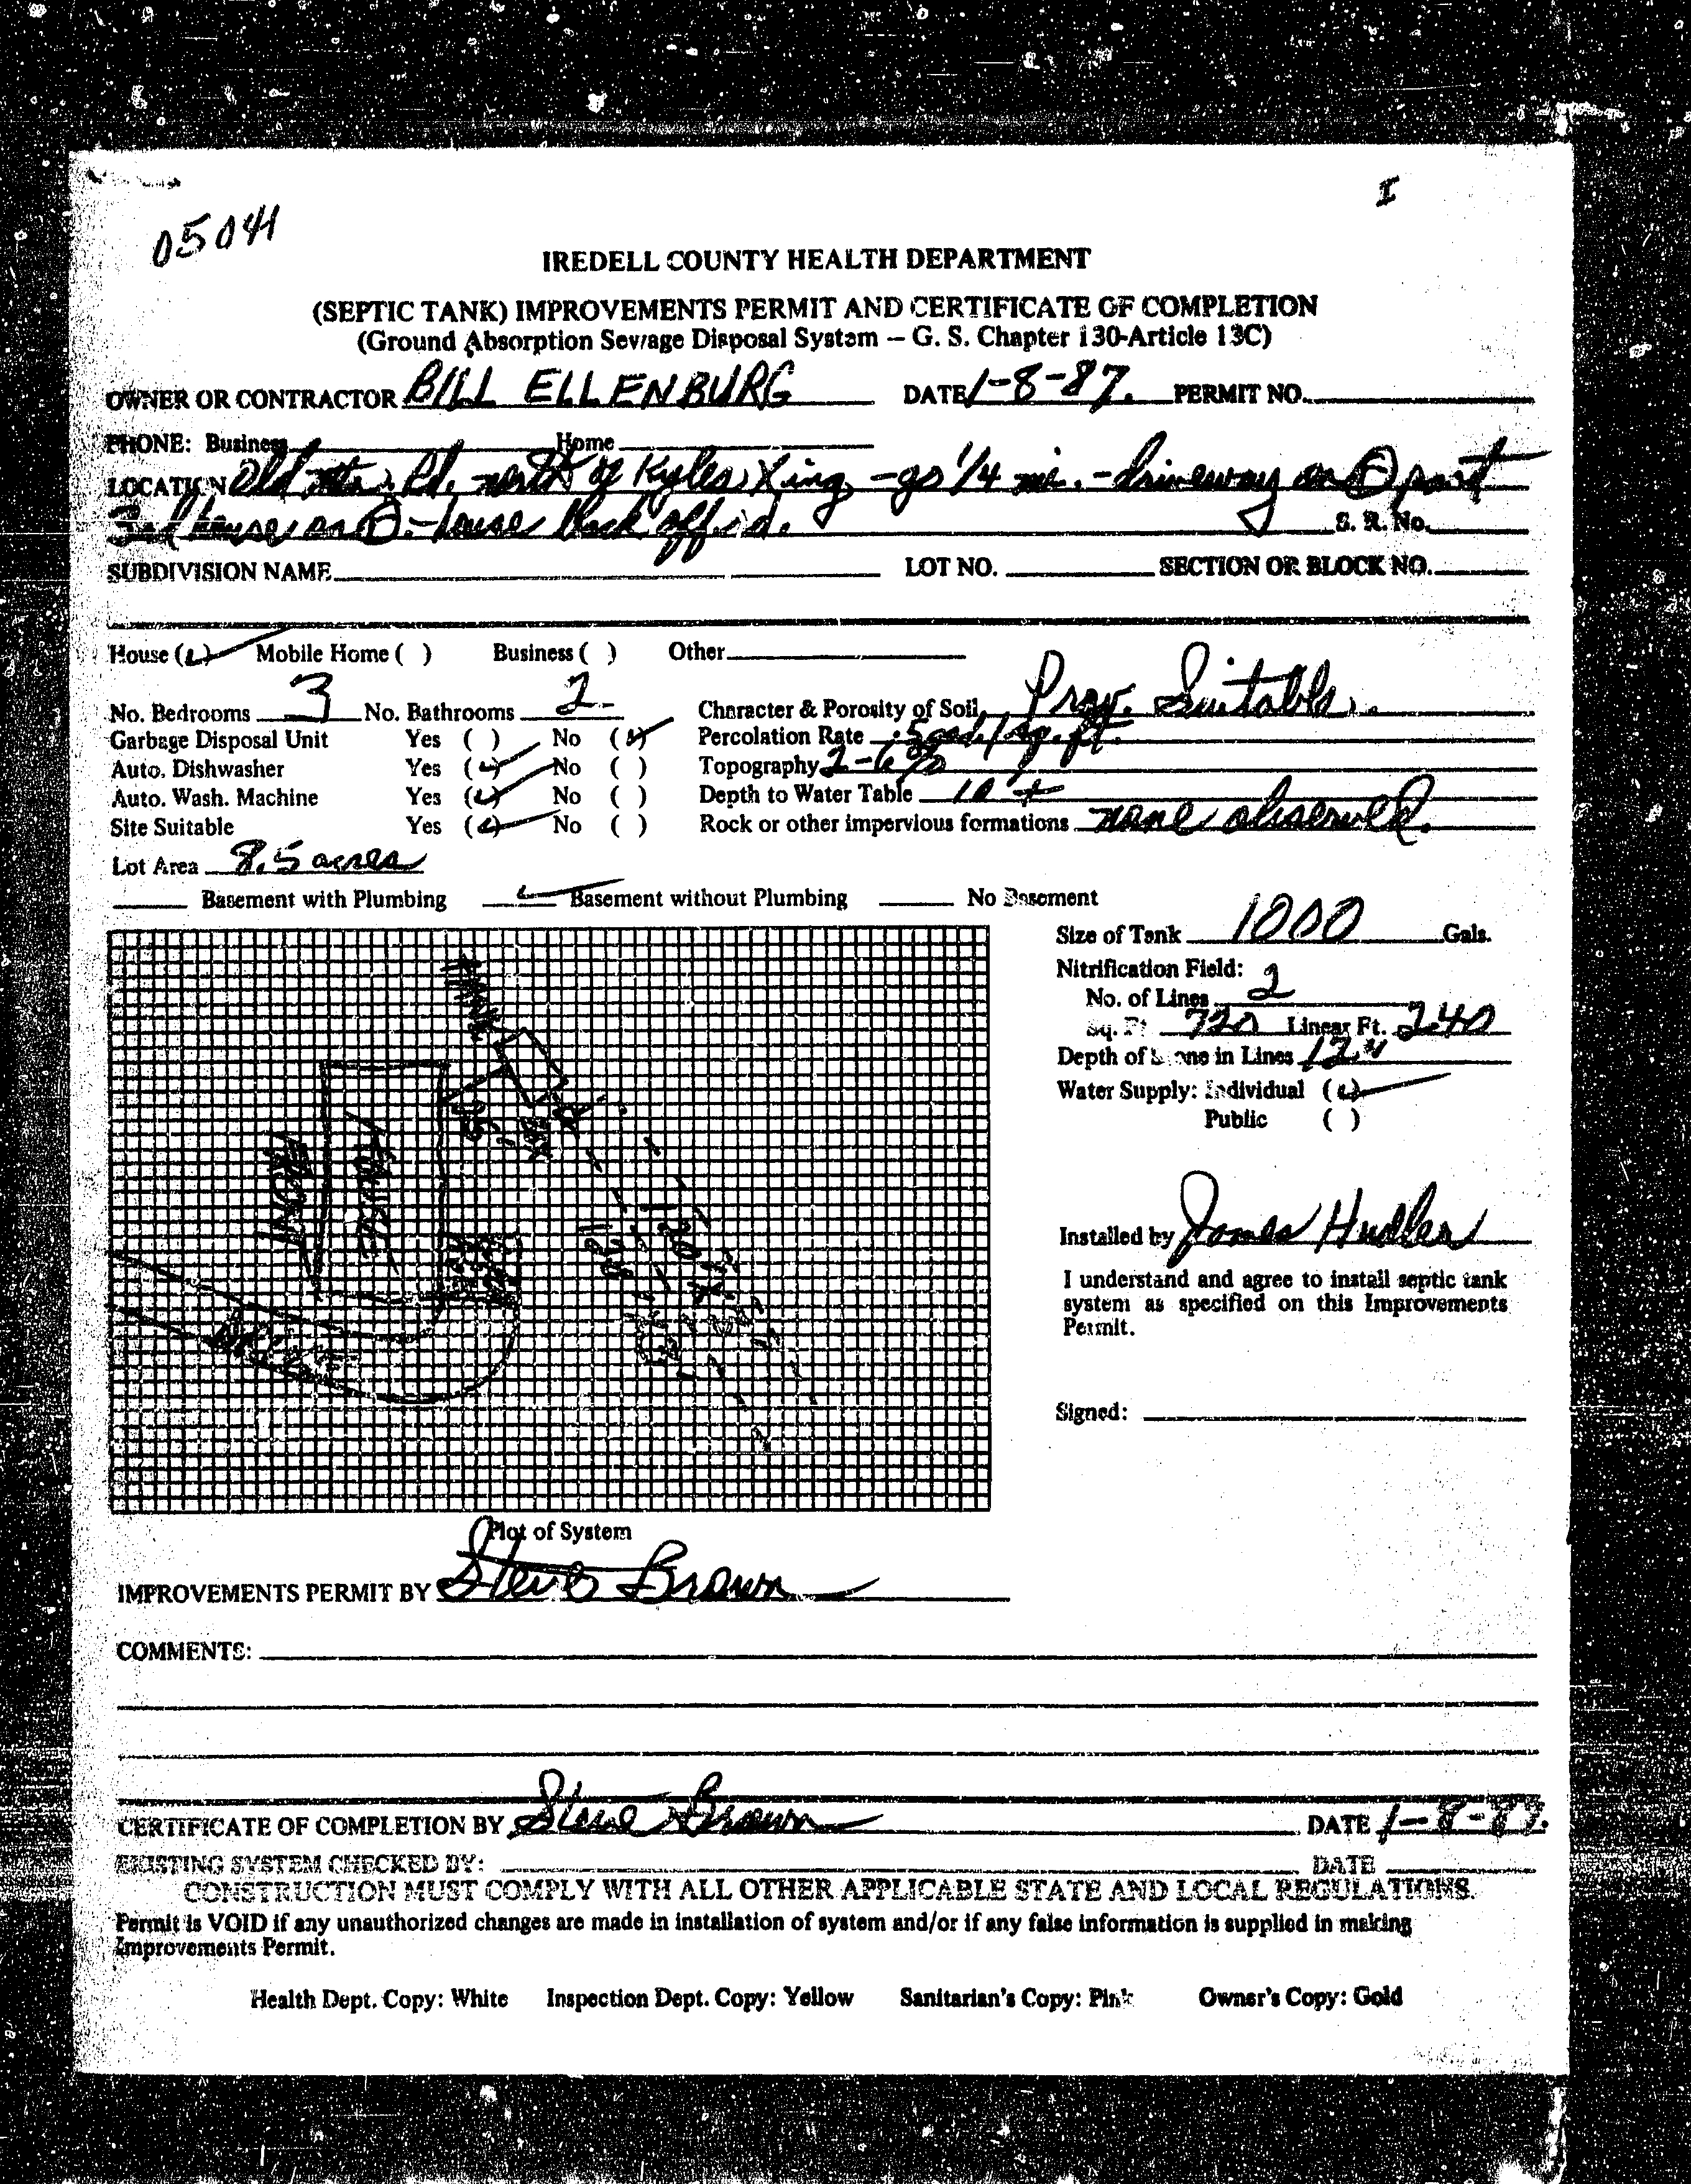 I
05041
IREDELL COUNTY HEALTH DEPARTMENT
(SEPTIC TANK) IMPROVEMENTS PERMIT AND CERTIFICATE OF COMPLETION
(Ground Absorption Sewage Disposal System – G. S. Chapter 130-Article 13C)
OWNER OR CONTRACTOR BILL ELLENBURG DATE 1-8-87. PERMIT NO.
PHONE: Business Home
LOCATION Old Mtn. Rd. north of Kyles Xing, - go 1/4 mi. - driveway on past
3rd house on - house back off rd. S. R. No.
SUBDIVISION NAME LOT NO. SECTION OR BLOCK NO.
House (✓) Mobile Home ( ) Business ( ) Other
No. Bedrooms 3 No. Bathrooms 2 Character & Porosity of Soil Prov. Suitable.
Garbage Disposal Unit Yes ( ) No (✓) Percolation Rate .5 gal/sq.ft.
Auto. Dishwasher Yes (✓) No ( ) Topography 2-6%
Auto. Wash. Machine Yes (✓) No ( ) Depth to Water Table 10'+
Site Suitable Yes (✓) No ( ) Rock or other impervious formations none observed.
Lot Area 8.5 acres
Basement with Plumbing ✓ Basement without Plumbing No Basement
Size of Tank 1000 Gals.
Nitrification Field:
No. of Lines 2
Sq. Ft. 720 Linear Ft. 240
Depth of Stone in Lines 12"
Water Supply: Individual (✓)
Public ( )
HOUSE
FRONT
DRIVE
120
120
Installed by James Hudler
I understand and agree to install septic tank
system as specified on this Improvements
Permit.
Signed:
Plot of System
IMPROVEMENTS PERMIT BY Steve Brown
COMMENTS:
CERTIFICATE OF COMPLETION BY Steve Brown DATE 1-8-87.
EXISTING SYSTEM CHECKED BY: DATE
CONSTRUCTION MUST COMPLY WITH ALL OTHER APPLICABLE STATE AND LOCAL REGULATIONS.
Permit is VOID if any unauthorized changes are made in installation of system and/or if any false information is supplied in making
Improvements Permit.
Health Dept. Copy: White Inspection Dept. Copy: Yellow Sanitarian's Copy: Pink Owner's Copy: Gold